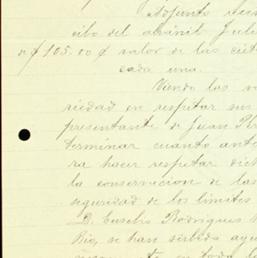 Adjunto
cibo del albañil Juli
de $105.00 $ valor de las
cada una.
Viendo las
riedad en respetar sus
presentante de Juan
terminar cuanto ant
ra hacer respetar dich
la conservacion de las
seguridad de los límites
D. Eusebio Rodrigues
Rio, se han